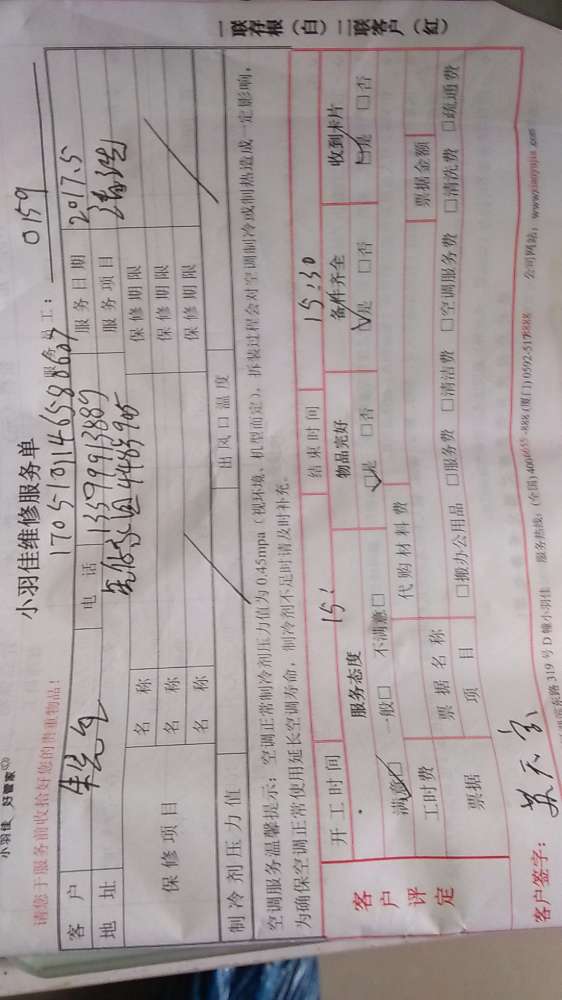 小羽佳 好管家
小羽佳维修服务单
1705101146588607
请您于服务前收拾好您的贵重物品!
服务员工: 0159
客户 朱先生 电话 13599913889 服务日期 2017.5
地址 服务项目 清洗
保修项目 名称 保修期限
名称 保修期限
名称 保修期限
制冷剂压力值 出风口温度
空调服务温馨提示:空调正常制冷剂压力值为0.45mpa(视环境、机型而定),拆装过程会对空调制冷或制热造成一定影响,
为确保空调正常使用延长空调寿命,制冷剂不足时请及时补充。
开工时间 15: 结束时间 15:30
客户评定 服务态度 物品完好 备件齐全 收到卡片
满意□ 一般□ 不满意□ □是 □否 □是 □否 □是 □否
工时费 代购材料费
票据 票据名称 票据金额
项目 □搬办公用品 □服务费 □清洁费 □空调服务费 □清洗费 □疏通费
319号D幢小羽佳 服务热线:(全国)4001655-888(厦门)0592-5178888 公司网站:www.xiaoyujia.com
客户签字:
一联存根(白)二联客户(红)